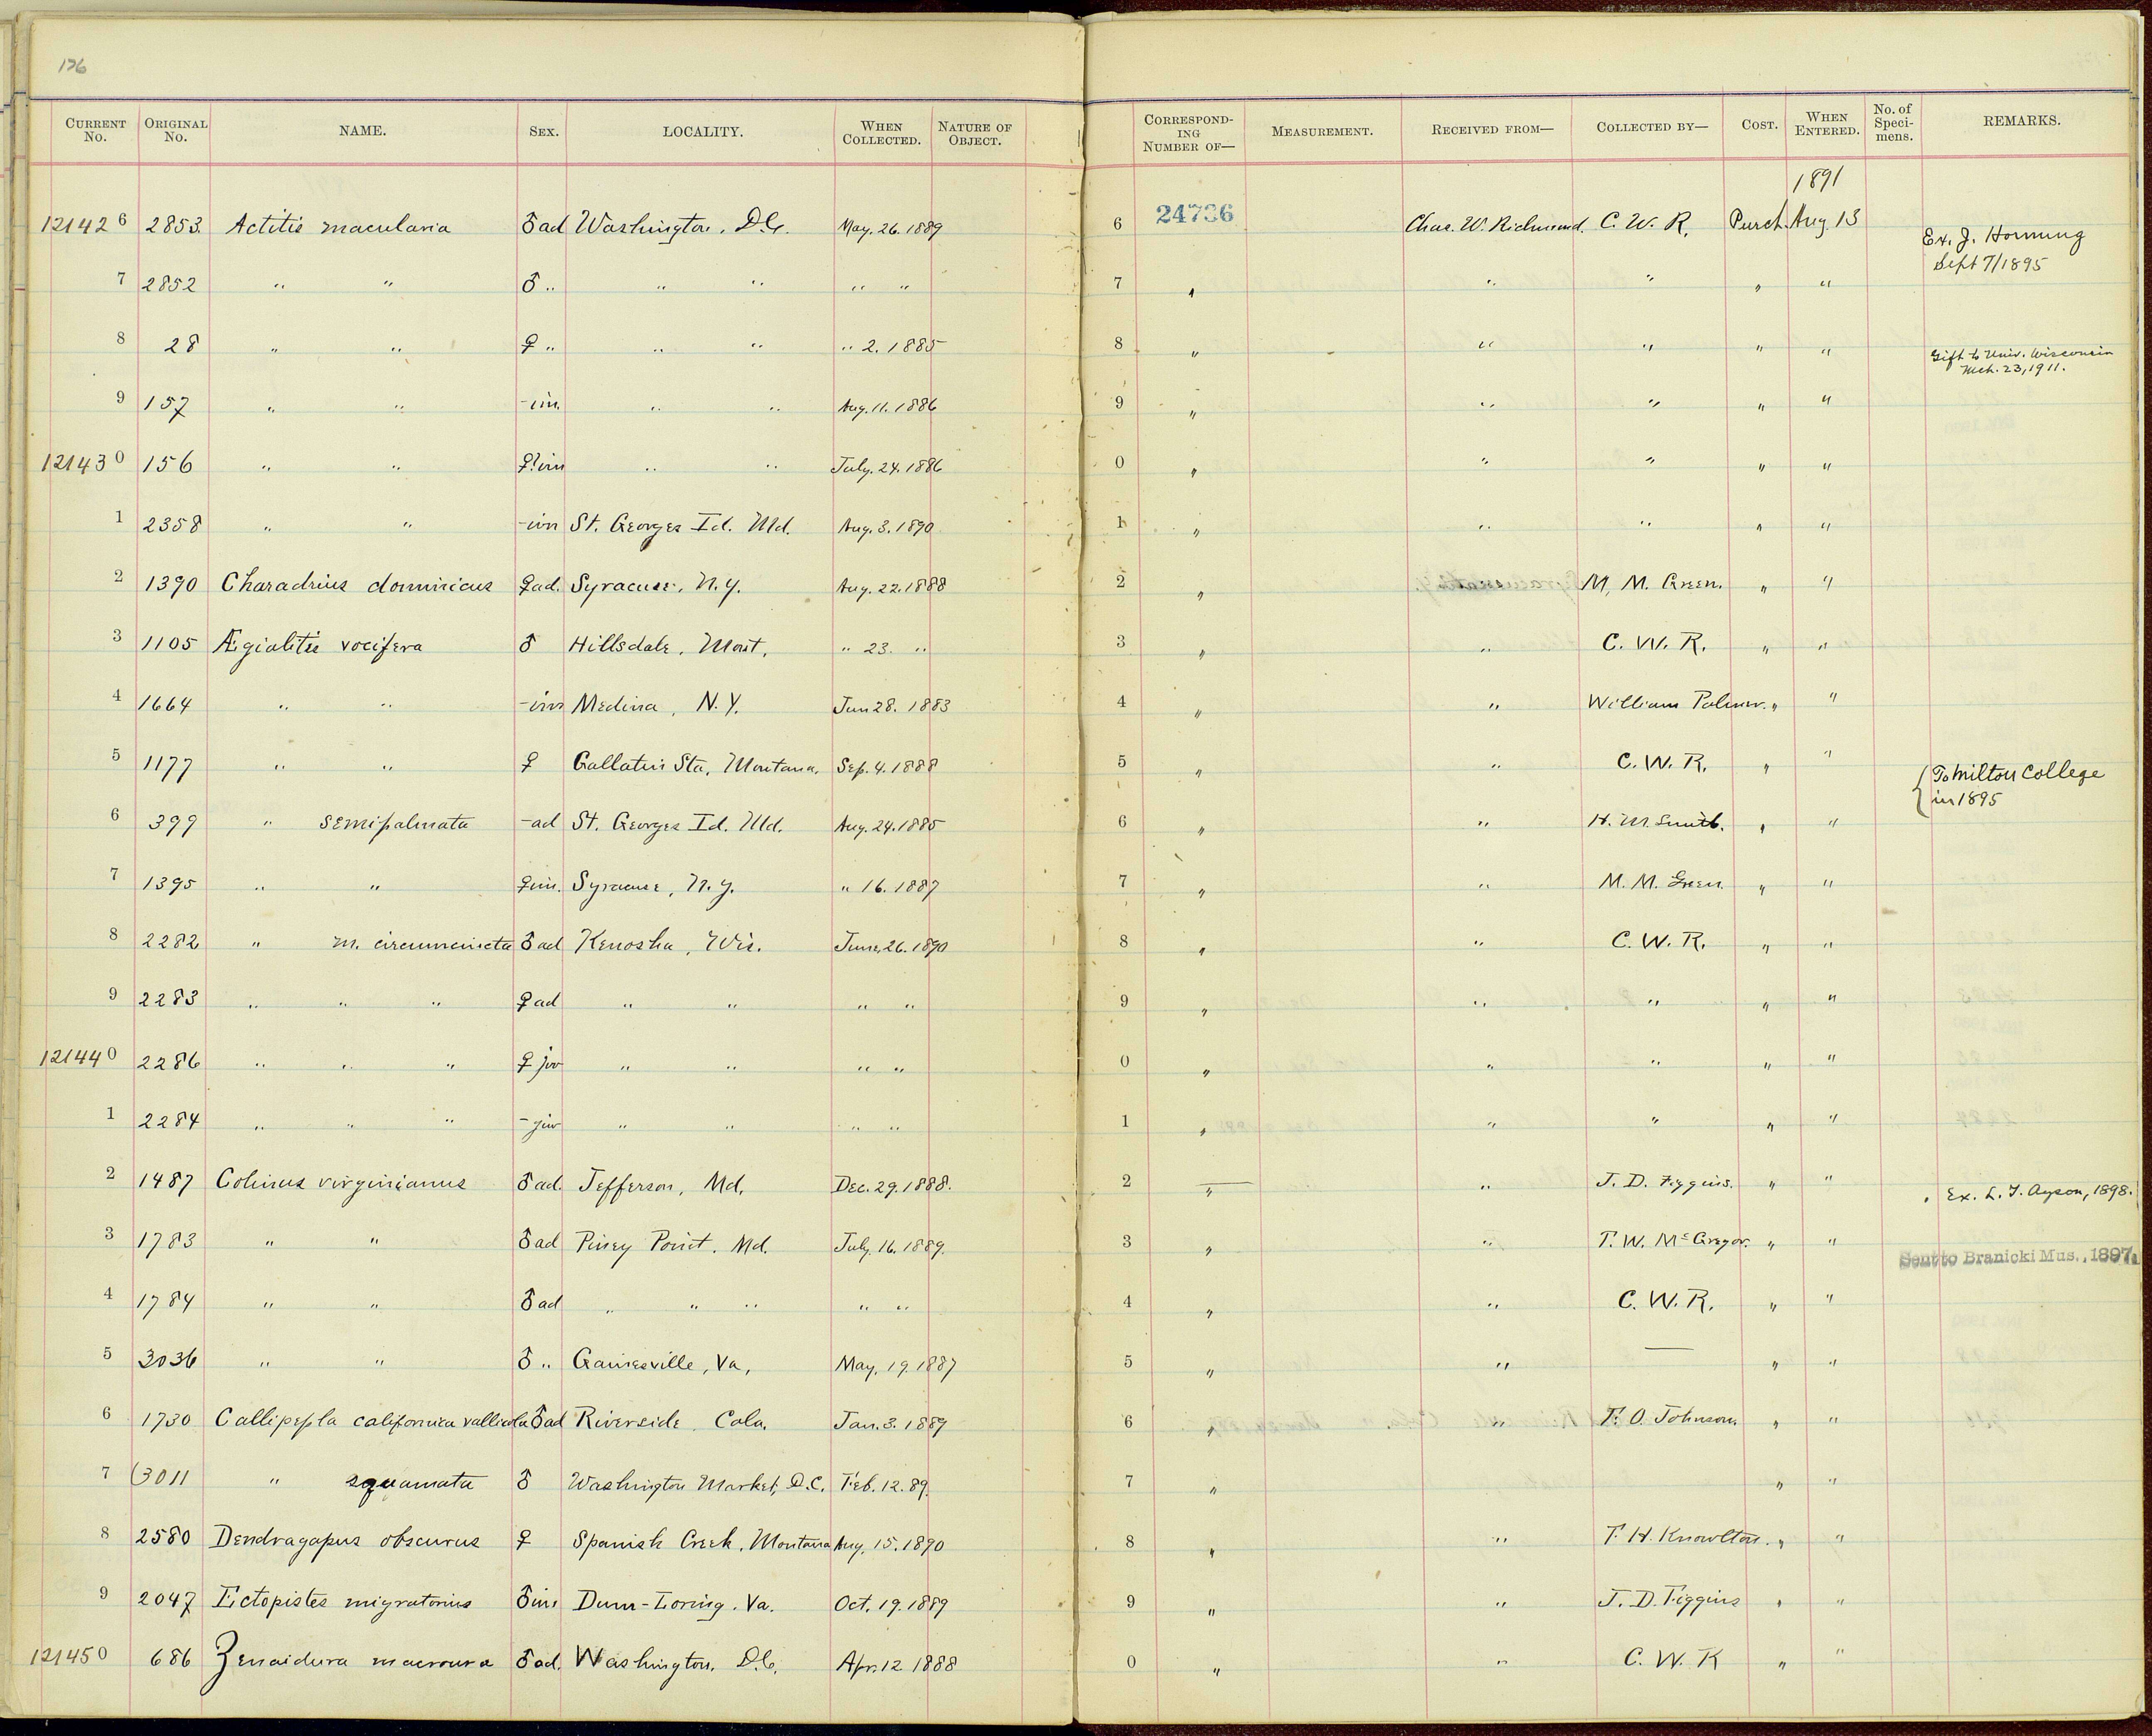 126
CURRENT No. ORIGINAL No. NAME. SEX. LOCALITY. WHEN COLLECTED. NATURE OF OBJECT. CORRESPONDING NUMBER OF— MEASUREMENT. RECEIVED FROM— COLLECTED BY— COST. WHEN ENTERED. No. of Specimens. REMARKS.
1891
121426 2853. Actitis macularia ♂ ad Washington, D.C. May. 26. 1889 6 24736 Chas. W. Richmond. C. W. R. Purch. Aug 13 Ex. J. Hornung
Sept 7/1895
7 2852 " " ♂ " " " " " 7 " " " " "
8 28 " " ♀ " " " " 2. 1885 8 " " " " " Gift to Univ. Wisconsin
Mch. 23, 1911.
9 157 " " - im. " " Aug. 11. 1886 9 " " " " "
121430 156 " " ♀? im " " July. 24. 1886 0 " " " " "
1 2358 " " - im St. Georges Id. Md. Aug. 3. 1890 1 " " " " "
2 1390 Charadrius dominicus ♀ ad. Syracuse, N.Y. Aug. 22. 1888 2 " M. M. Green. " "
3 1105 Ægialitis vocifera ♂ Hillsdale, Mont. " 23. " 3 " " C. W. R. " "
4 1664 " " - im Medina, N.Y. Jun 28. 1883 4 " " William Palmer. " "
5 1177 " " ♀ Gallatin Sta, Montana, Sep. 4. 1888 5 " " C. W. R. " " { To Milton College
in 1895
6 399 " semipalmata - ad St. Georges Id. Md. Aug. 24. 1885 6 " " H. M. Smith. " "
7 1395 " " ♀ im. Syracuse, N.Y. " 16. 1887 7 " " M. M. Green. " "
8 2282 " m. circumcincta ♂ ad Kenosha, Wis. June. 26. 1890 8 " " C. W. R. " "
9 2283 " " " ♀ ad " " " " 9 " " " " "
121440 2286 " " " ♀ juv " " " " 0 " " " " "
1 2284 " " " - juv " " " " 1 " " " " "
2 1487 Colinus virginianus ♂ ad. Jefferson, Md. Dec. 29. 1888. 2 " " J. D. Figgins. " " Ex. L. F. Ayson, 1898.
3 1783 " " ♂ ad Piney Point. Md. July. 16. 1889. 3 " " T. W. McGregor. " " Sent to Branicki Mus., 1897.
4 1784 " " ♂ ad " " " " " 4 " " C. W. R. " "
5 3036 " " ♂ " Gainesville, Va, May. 19. 1887 5 " " — " "
6 1730 Callipepla californica vallicola ♂ ad Riverside Cala. Jan. 3. 1889 6 " " F. O. Johnson. " "
7 (3011 " squamata ♂ Washington Market, D.C. Feb. 12. 89. 7 " " "
8 2580 Dendragapus obscurus ♀ Spanish Creek, Montana Aug. 15. 1890 8 " " F. H. Knowlton. " "
9 2047 Ectopistes migratorius ♂ im Dunn-Loring. Va. Oct. 19. 1889 9 " " J. D. Figgins " "
121450 686 Zenaidura macroura ♂ ad. Washington, D.C. Apr. 12 1888 0 " " C. W. R " "